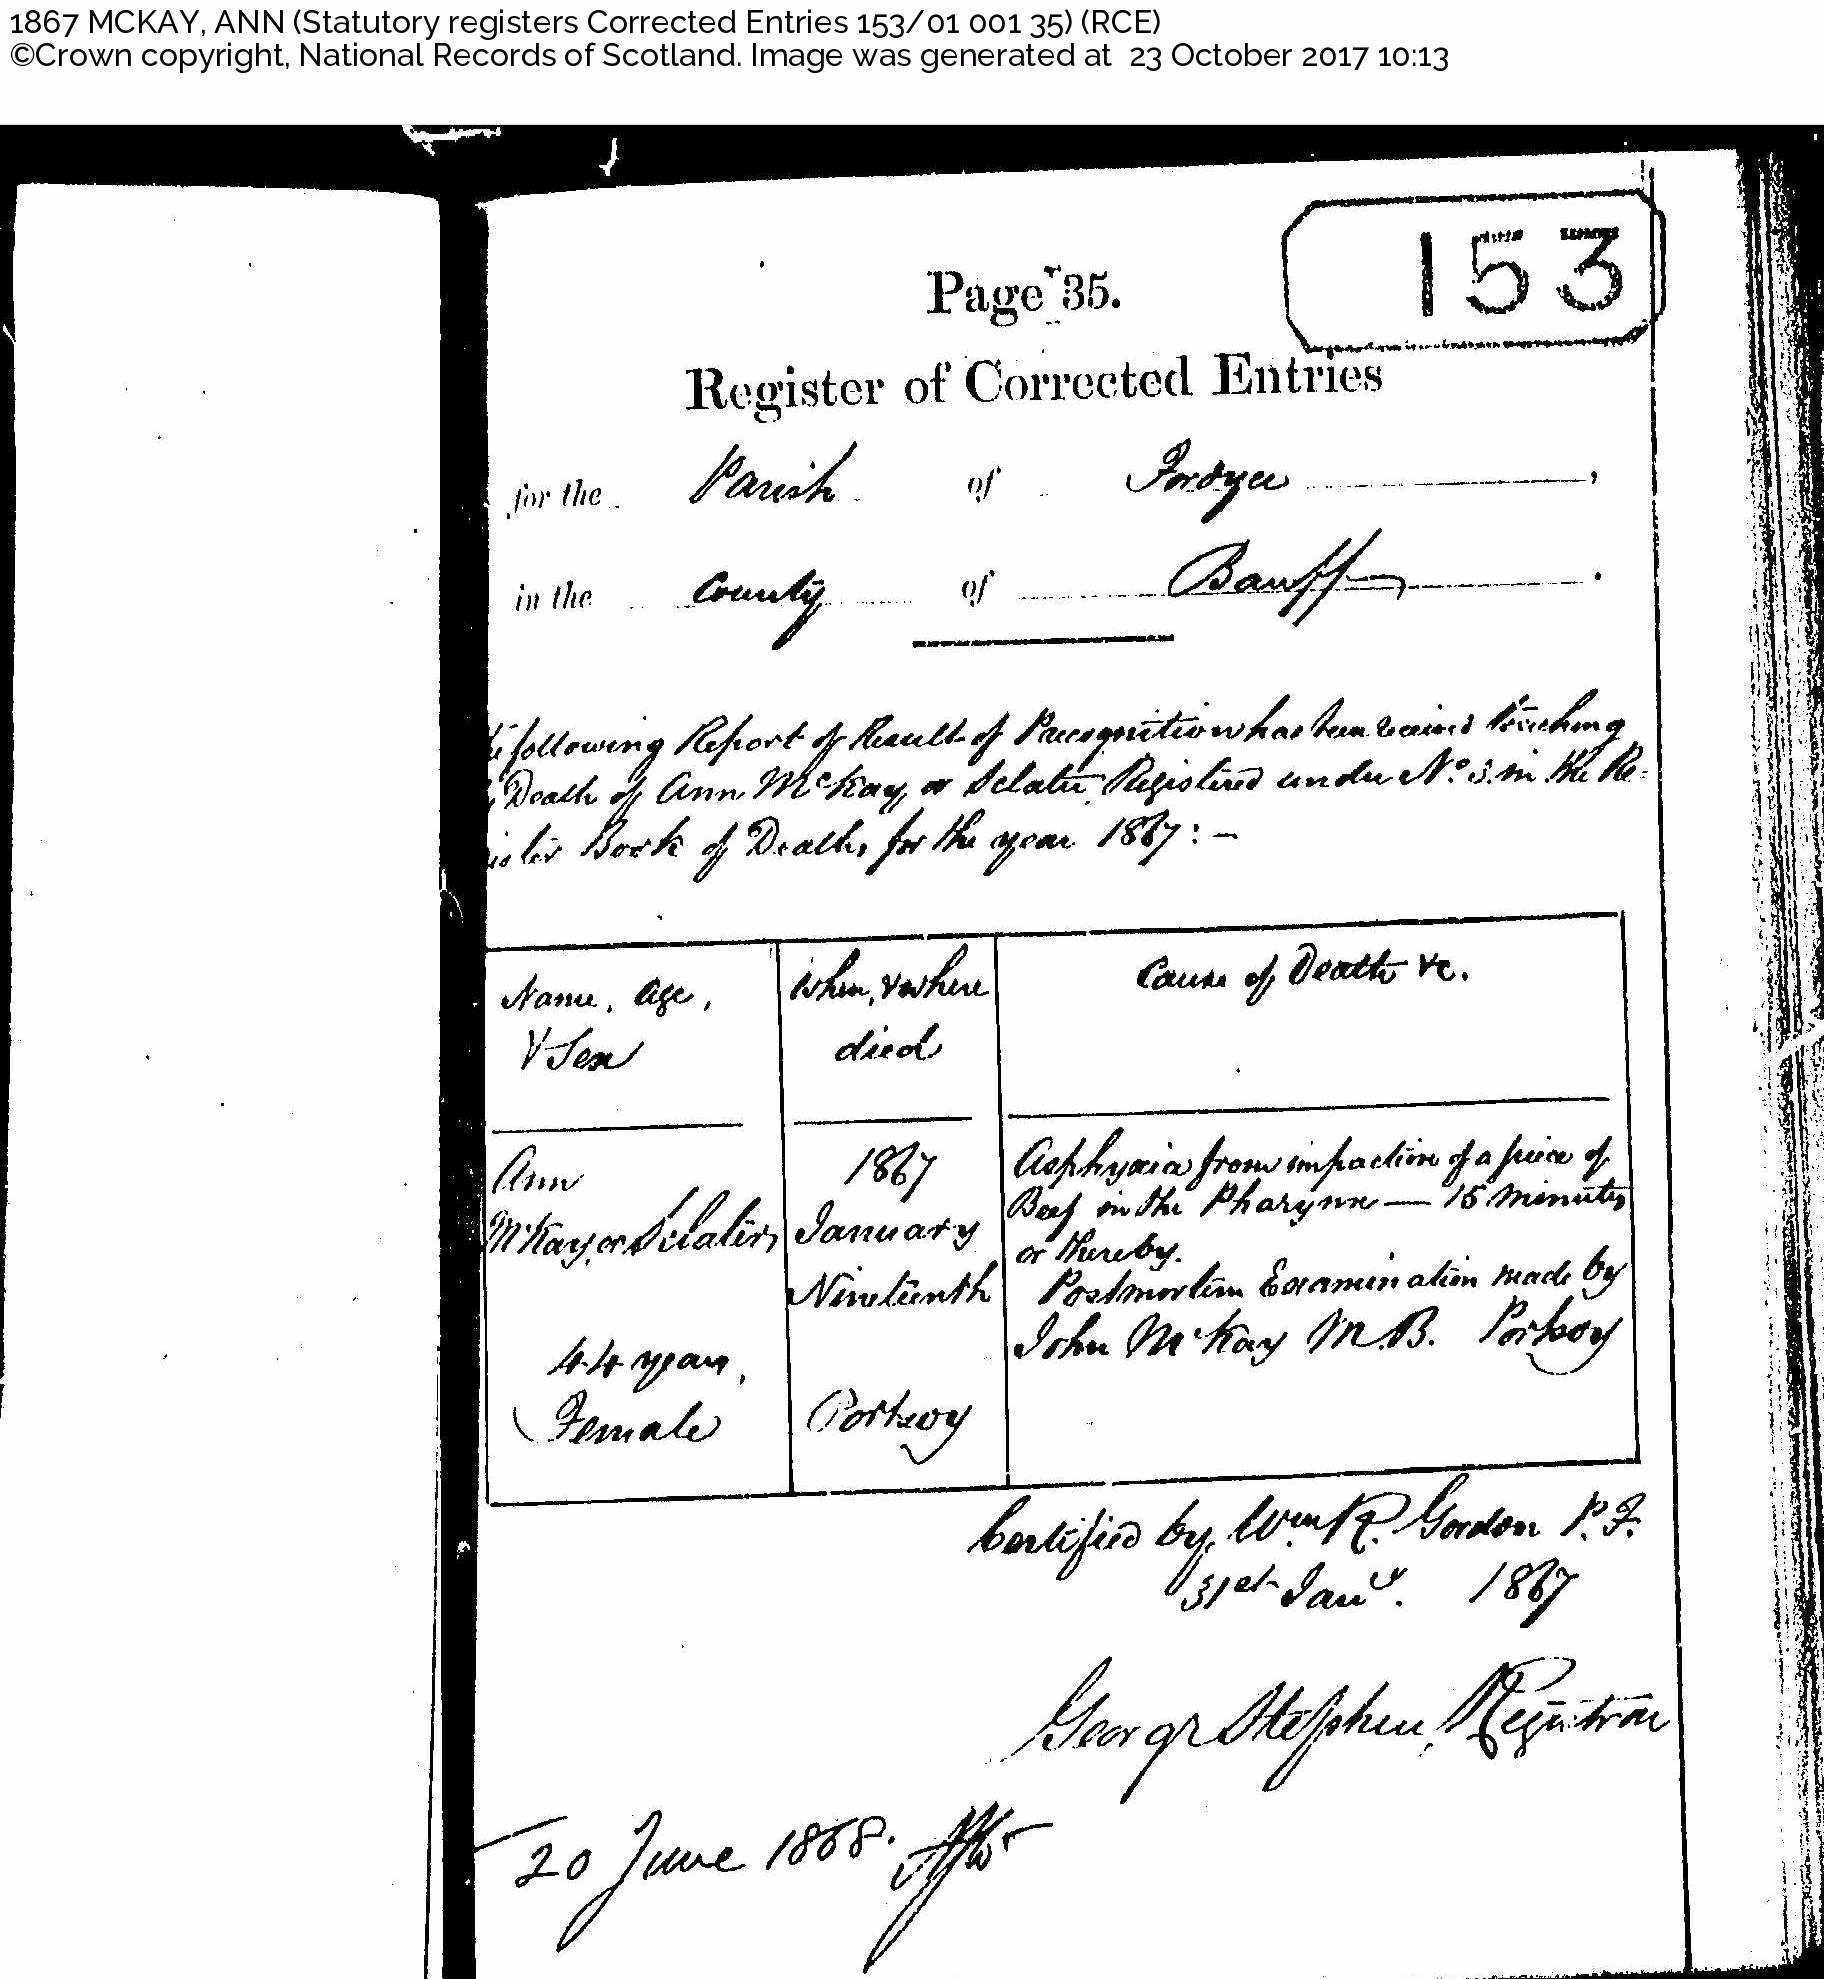 1867 MCKAY, ANN (Statutory registers Corrected Entries 153/01 001 35) (RCE)
©Crown copyright, National Records of Scotland. Image was generated at 23 October 2017 10:13
153
Page 35.
Register of Corrected Entries
for the Parish of Fordyce,
in the County of Banff.
following Report of Result of Precognition has been received touching
Death of Ann McKay or Sclater, Registered under No. 3. in the Re-
ister Book of Deaths for the year 1867:—
Name, Age,
& Sex
When, & where
died
Cause of Death &c.
Ann
McKay or Sclater,
44 years,
Female
1867
January
Nineteenth
Portsoy
Asphyxia from impaction of a piece of
Beef in the Pharynx — 15 minutes
or thereby.
Postmortem Examination made by
John McKay M.B. Portsoy
Certified by, Wm. R. Gordon P.F.
31st Jany. 1867
George Stephen, Registrar
20 June 1868.